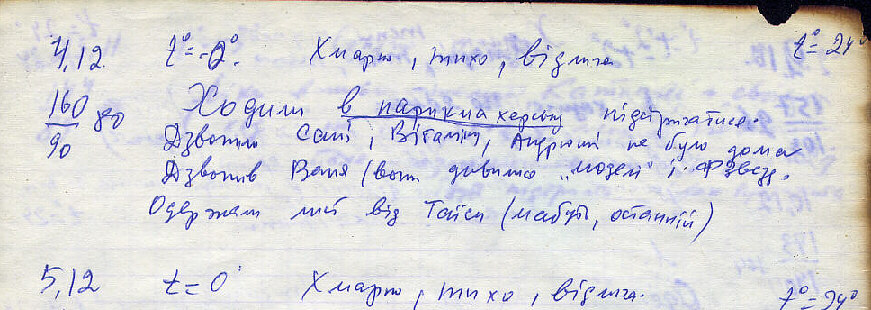 4,12 t°=-2°. Хмарно, тихо, відлига t°=24°
160/90 80 Ходили в парикмахерську підстригатися.
Дзвонив Саші, Віталію, Андрюші не було дома
Дзвонив Ваня (вони дивились "модем" і
Одержали лист від Таїси (мабуть, останній)
5,12 t=0° Хмарно, тихо, відлига. t°=24°